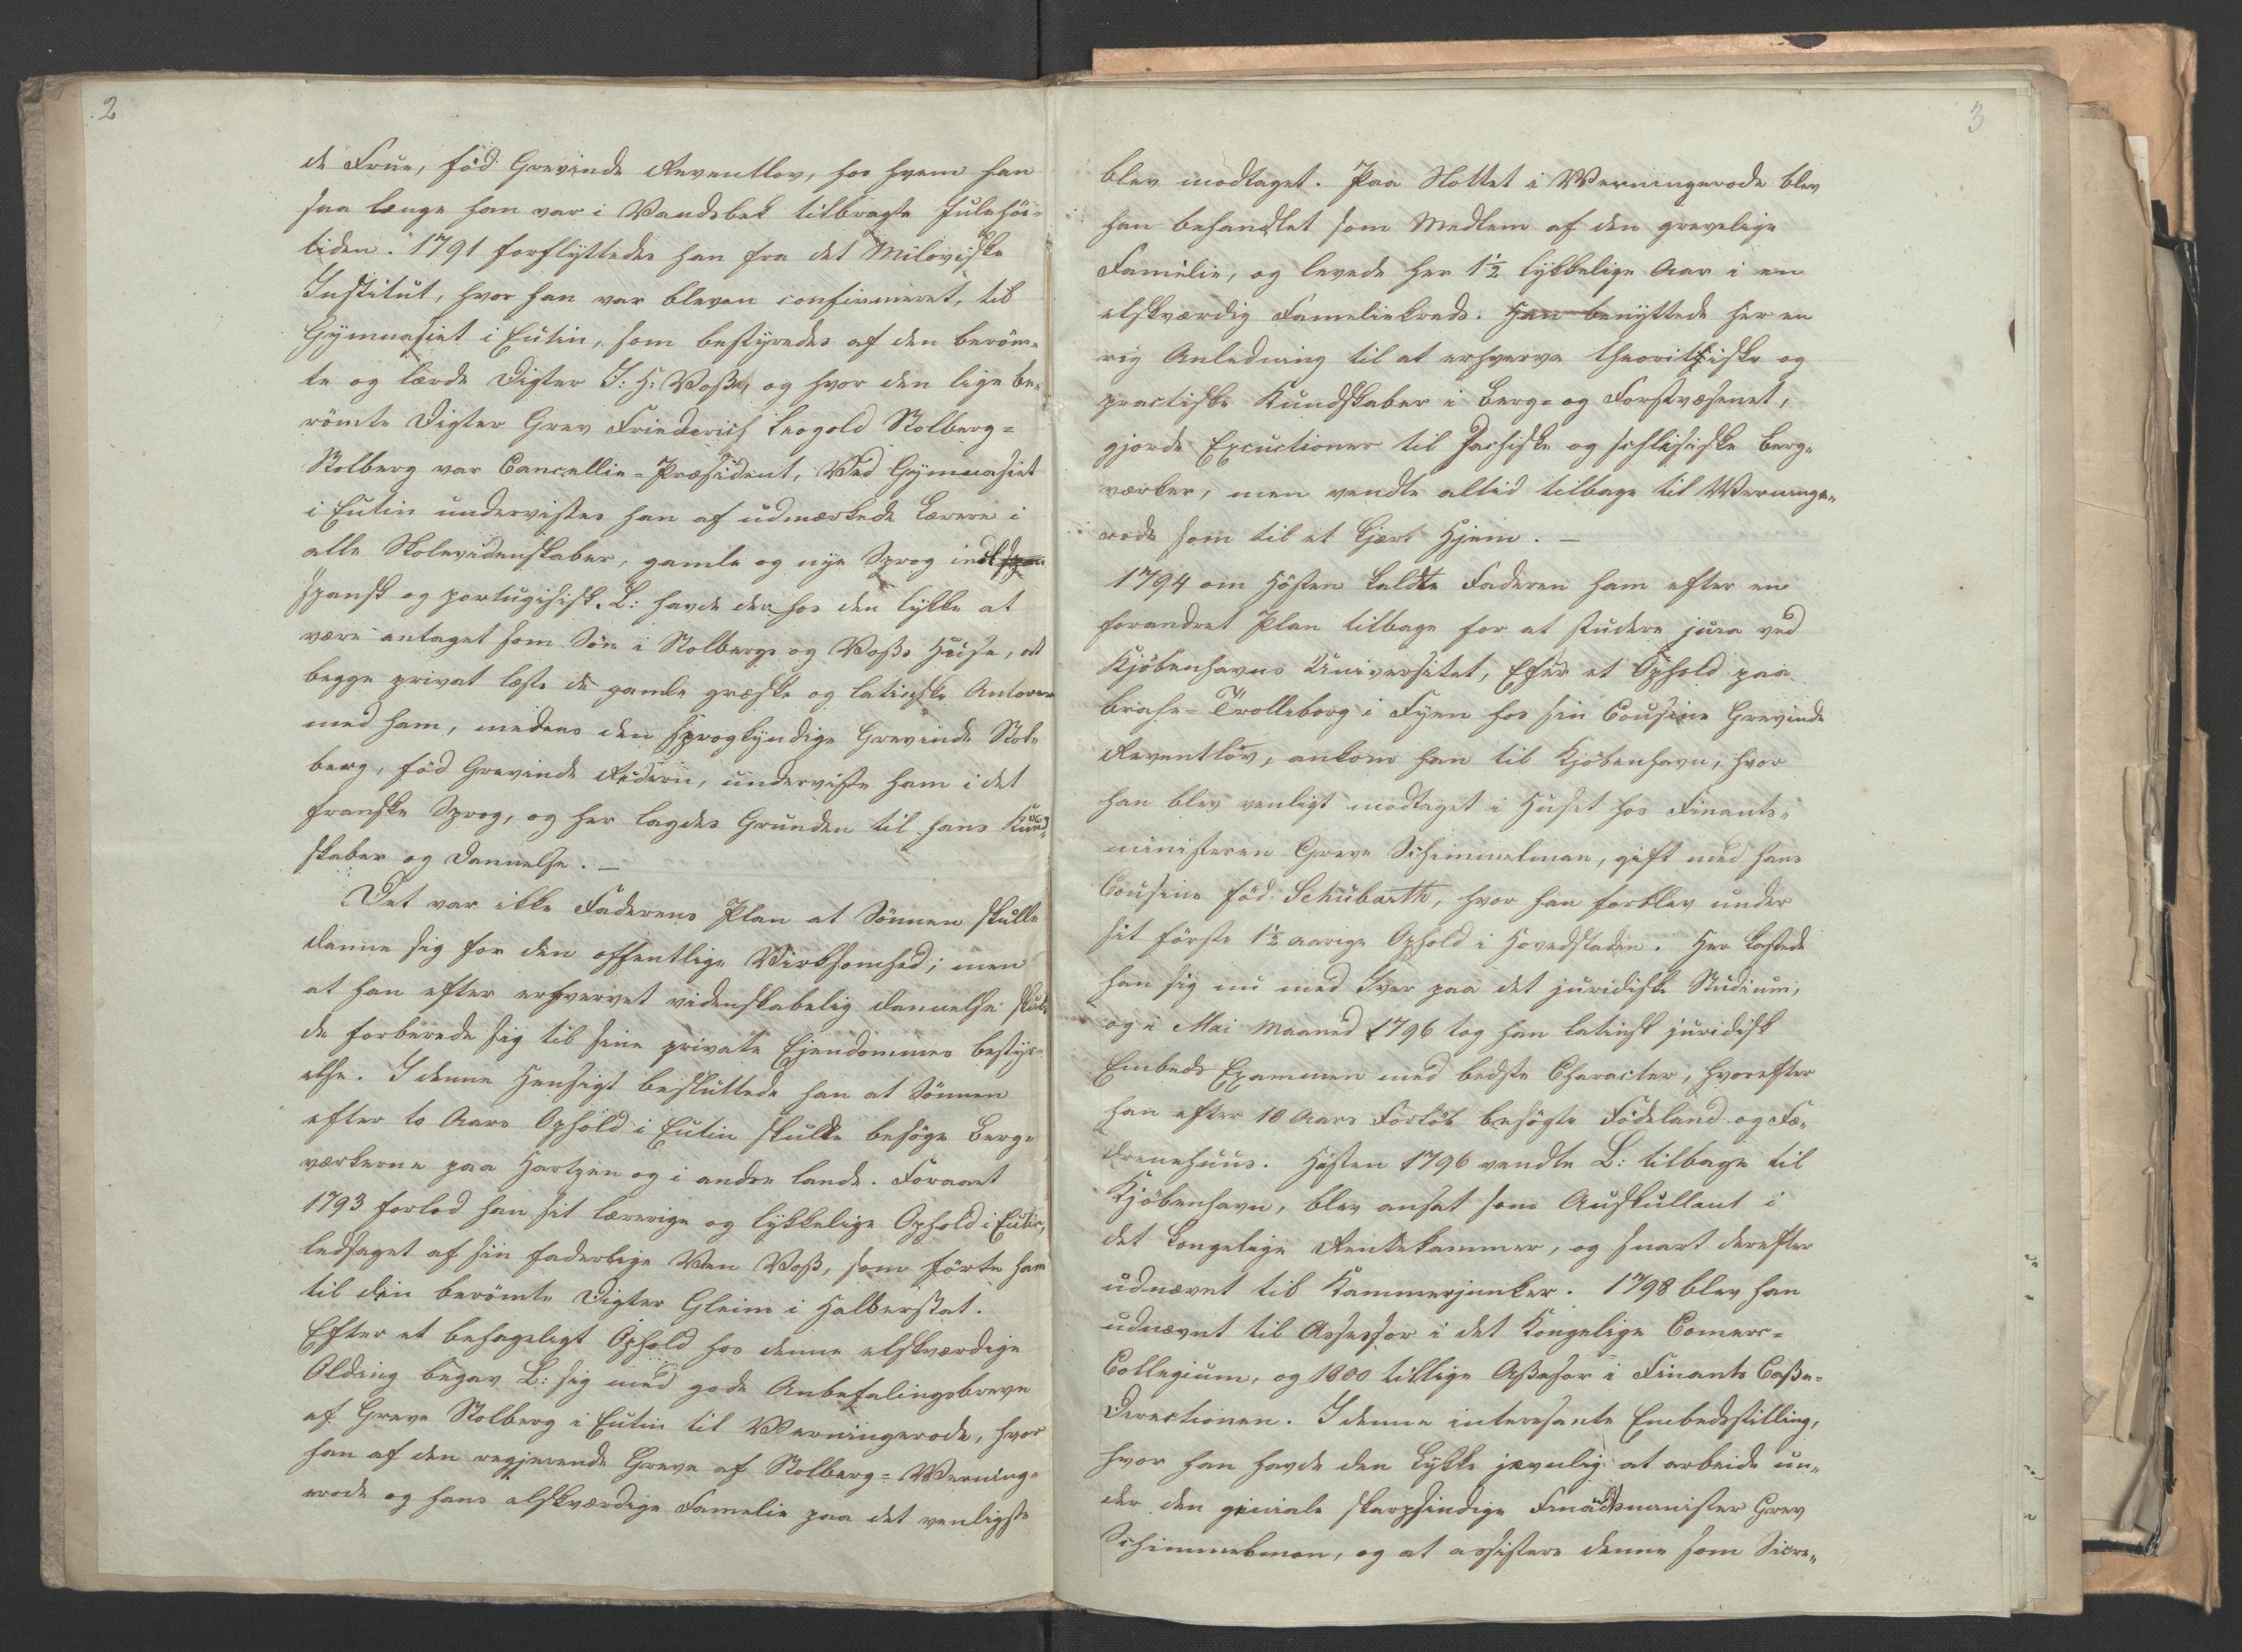 2
de Frue, föd Grevinde Reventlov, hos hvem han
saa længe han var i Vandsbek tilbragte Julehöi-
tiden. 1791 forflyttedes han fra det Miloviske
Institut, hvor han var bleven confirmeret, til
Gymnasiet i Eutin, som bestyredes af den beröm-
te og lærde Digter J: H: Voß, og hvor den lige be-
römte Digter Grev Friederich Leopold Stolberg-
Stolberg var Cancellie-Præsident, Ved Gymnasiet
i Eutin undervistes han af udmærkede Lærere i
alle Skolevidenskaber, gamle og nye Sprog indtil
spansk og portugisisk. L: havde der hos den lykke at
være antaget som Sön i Stolbergs og Voßs Huse, at
begge privat læste de gamle græske og latinske Autorer
med ham, medens den sprogkyndige Grevinde Stol-
berg, föd Grevinde Redern, underviste ham i det
franske Sprog, og her lagdes Grunden til hans Kund-
skaber og Dannelse. —
Det var ikke Faderens Plan at Sönnen skulle
danne sig for den offentlige Virksomhed; men
at han efter erhvervet videnskabelig dannelse skul-
de forberede sig til sine private Ejendommes bestyr-
else. I denne Hensigt besluttede han at Sönnen
efter to Aars Ophold i Eutin skulde besöge Berg-
værkerne paa Hartzen og i andre lande. Foraaret
1793 forlod han sit lærerige og lykkelige Ophold i Eutin,
ledsaget af sin faderlige Ven Voß, som förte ham
til den berömte Digter Gleim i Halberstat.
Efter et behageligt Ophold hos denne elskværdige
Olding begav L: sig med gode Anbefalingsbreve
af Greve Stolberg i Eutin til Werningerode, hvor
han af den regjerende Greve af Stolberg-Werning-
erode og hans elskværdige Famelie paa det venligste
3
blev modtaget. Paa Slottet i Werningerode blev
han behandlet som Medlem af den grevelige
Famielie, og levede her 1½ lykkelige Aar i en
elskværdig Familiekreds. Han benyttede her en
rig Anledning til at erhverve theoritiske og
practiske Kundskaber i Berg- og Forstvæsenet,
gjorde Excuctioner til sachsiske og schlesiske Berg-
værker, men vendte altid tilbage til Werninge-
rode som til et kjært Hjem. —
1794 om Hösten kaldte Faderen ham efter en
forandret Plan tilbage for at studere jura ved
Kjöbenhavns Universitet, Efter et Ophold paa
Brahe-Trolleborg i Fyen hos sin Cousine Grevinde
Reventlov, ankom han til Kjöbenhavn, hvor
han blev venligt modtaget i Huset hos Finants-
ministeren Greve Schimmelman, gift med hans
Cousine föd Schubarth, hvor han forblev under
sit förste 1½ aarige Ophold i Hovedstaden. Her kastede
han sig nu med Iver paa det juridiske Studium,
og i Mai Maaned 1796 tog han latinsk juridisk
Embeds Exammen med bedste Character, hvorefter
han efter 10 Aars Forlöb besögte Födeland og Fæ-
drenehuus. Hösten 1796 vendte L: tilbage til
Kjöbenhavn, blev ansat som Auskultant i
det kongelige Rentekammer, og snart derefter
udnævnt til Kammerjunker. 1798 blev han
udnævnt til Assessor i det Kongelige Comerc-
Collegium, og 1800 tillige Aßesor i Finants Caße-
Directionen. I denne interesante Embedsstilling,
hvor han havde den Lykke jævnlig at arbeide un-
der den geniale skarpsindige Finantsminister Grev
Schimmelman, og at assistere denne som Secre-